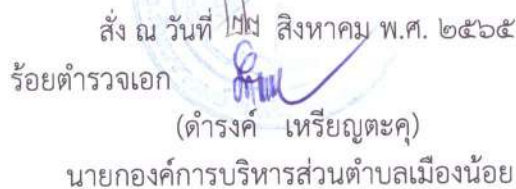 สั่ง ณ วันที่ ๒๒ สิงหาคม พ.ศ. ๒๕๖๕
ร้อยตำรวจเอก
(ดำรงค์ เหรียญตะคุ)
นายกองค์การบริหารส่วนตำบลเมืองน้อย